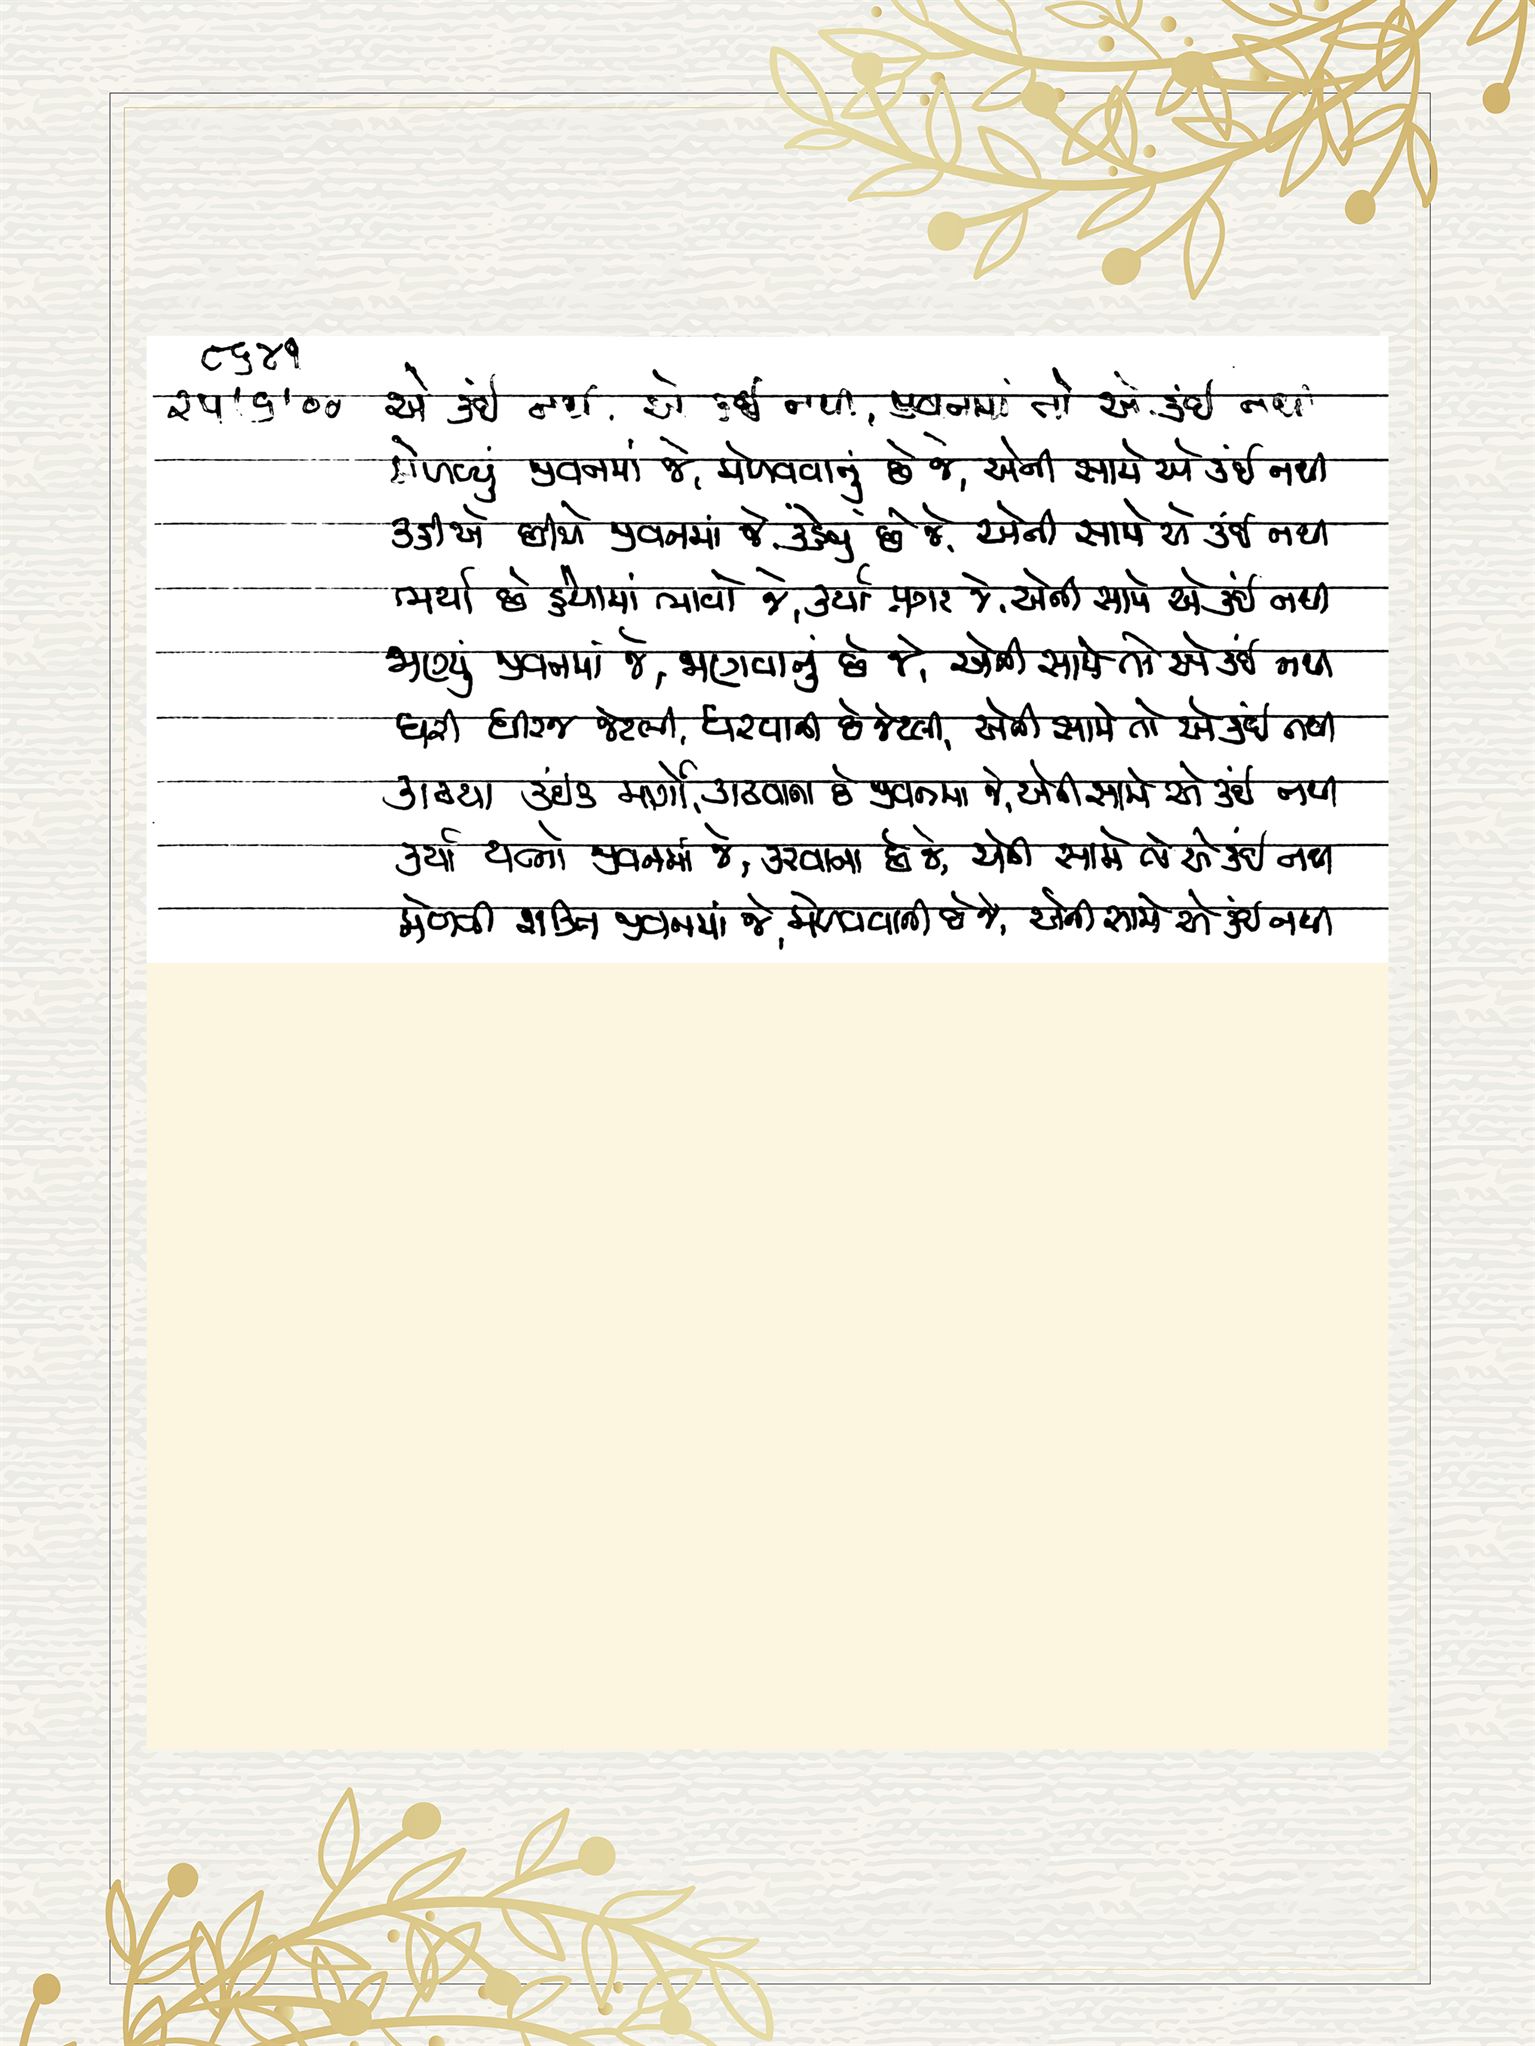 ૮૬૪૧
૨૫|૬|૦૦ એ કંઈ નથી, એ કંઈ નથી, જીવનમાં તો એ કંઈ નથી
મેળવ્યું જીવનમાં જે, મેળવવાનું છે જે, એની સામે એ કંઈ નથી
છીએ જીવનમાં જે, છે જે, એની સામે એ કંઈ નથી
ભર્યા છે હૈયામાં ભાવો જે, કર્યા જે, એની સામે એ કંઈ નથી
ભણ્યું જીવનમાં જે, ભણવાનું છે જે, એની સામે તો એ કંઈ નથી
ધરી ધીરજ જેટલી, ધરવાની છે જેટલી, એની સામે તો એ કંઈ નથી
કાઢયા કંઈક માર્ગો, કાઢવાના છે જીવનમાં જે, એની સામે એ કંઈ નથી
કર્યા યત્નો જીવનમાં જે, કરવાના છે જે, એની સામે તો એ કંઈ નથી
મેળવી શક્તિ જીવનમાં જે, મેળવવાની છે જે, એની સામે એ કંઈ નથી